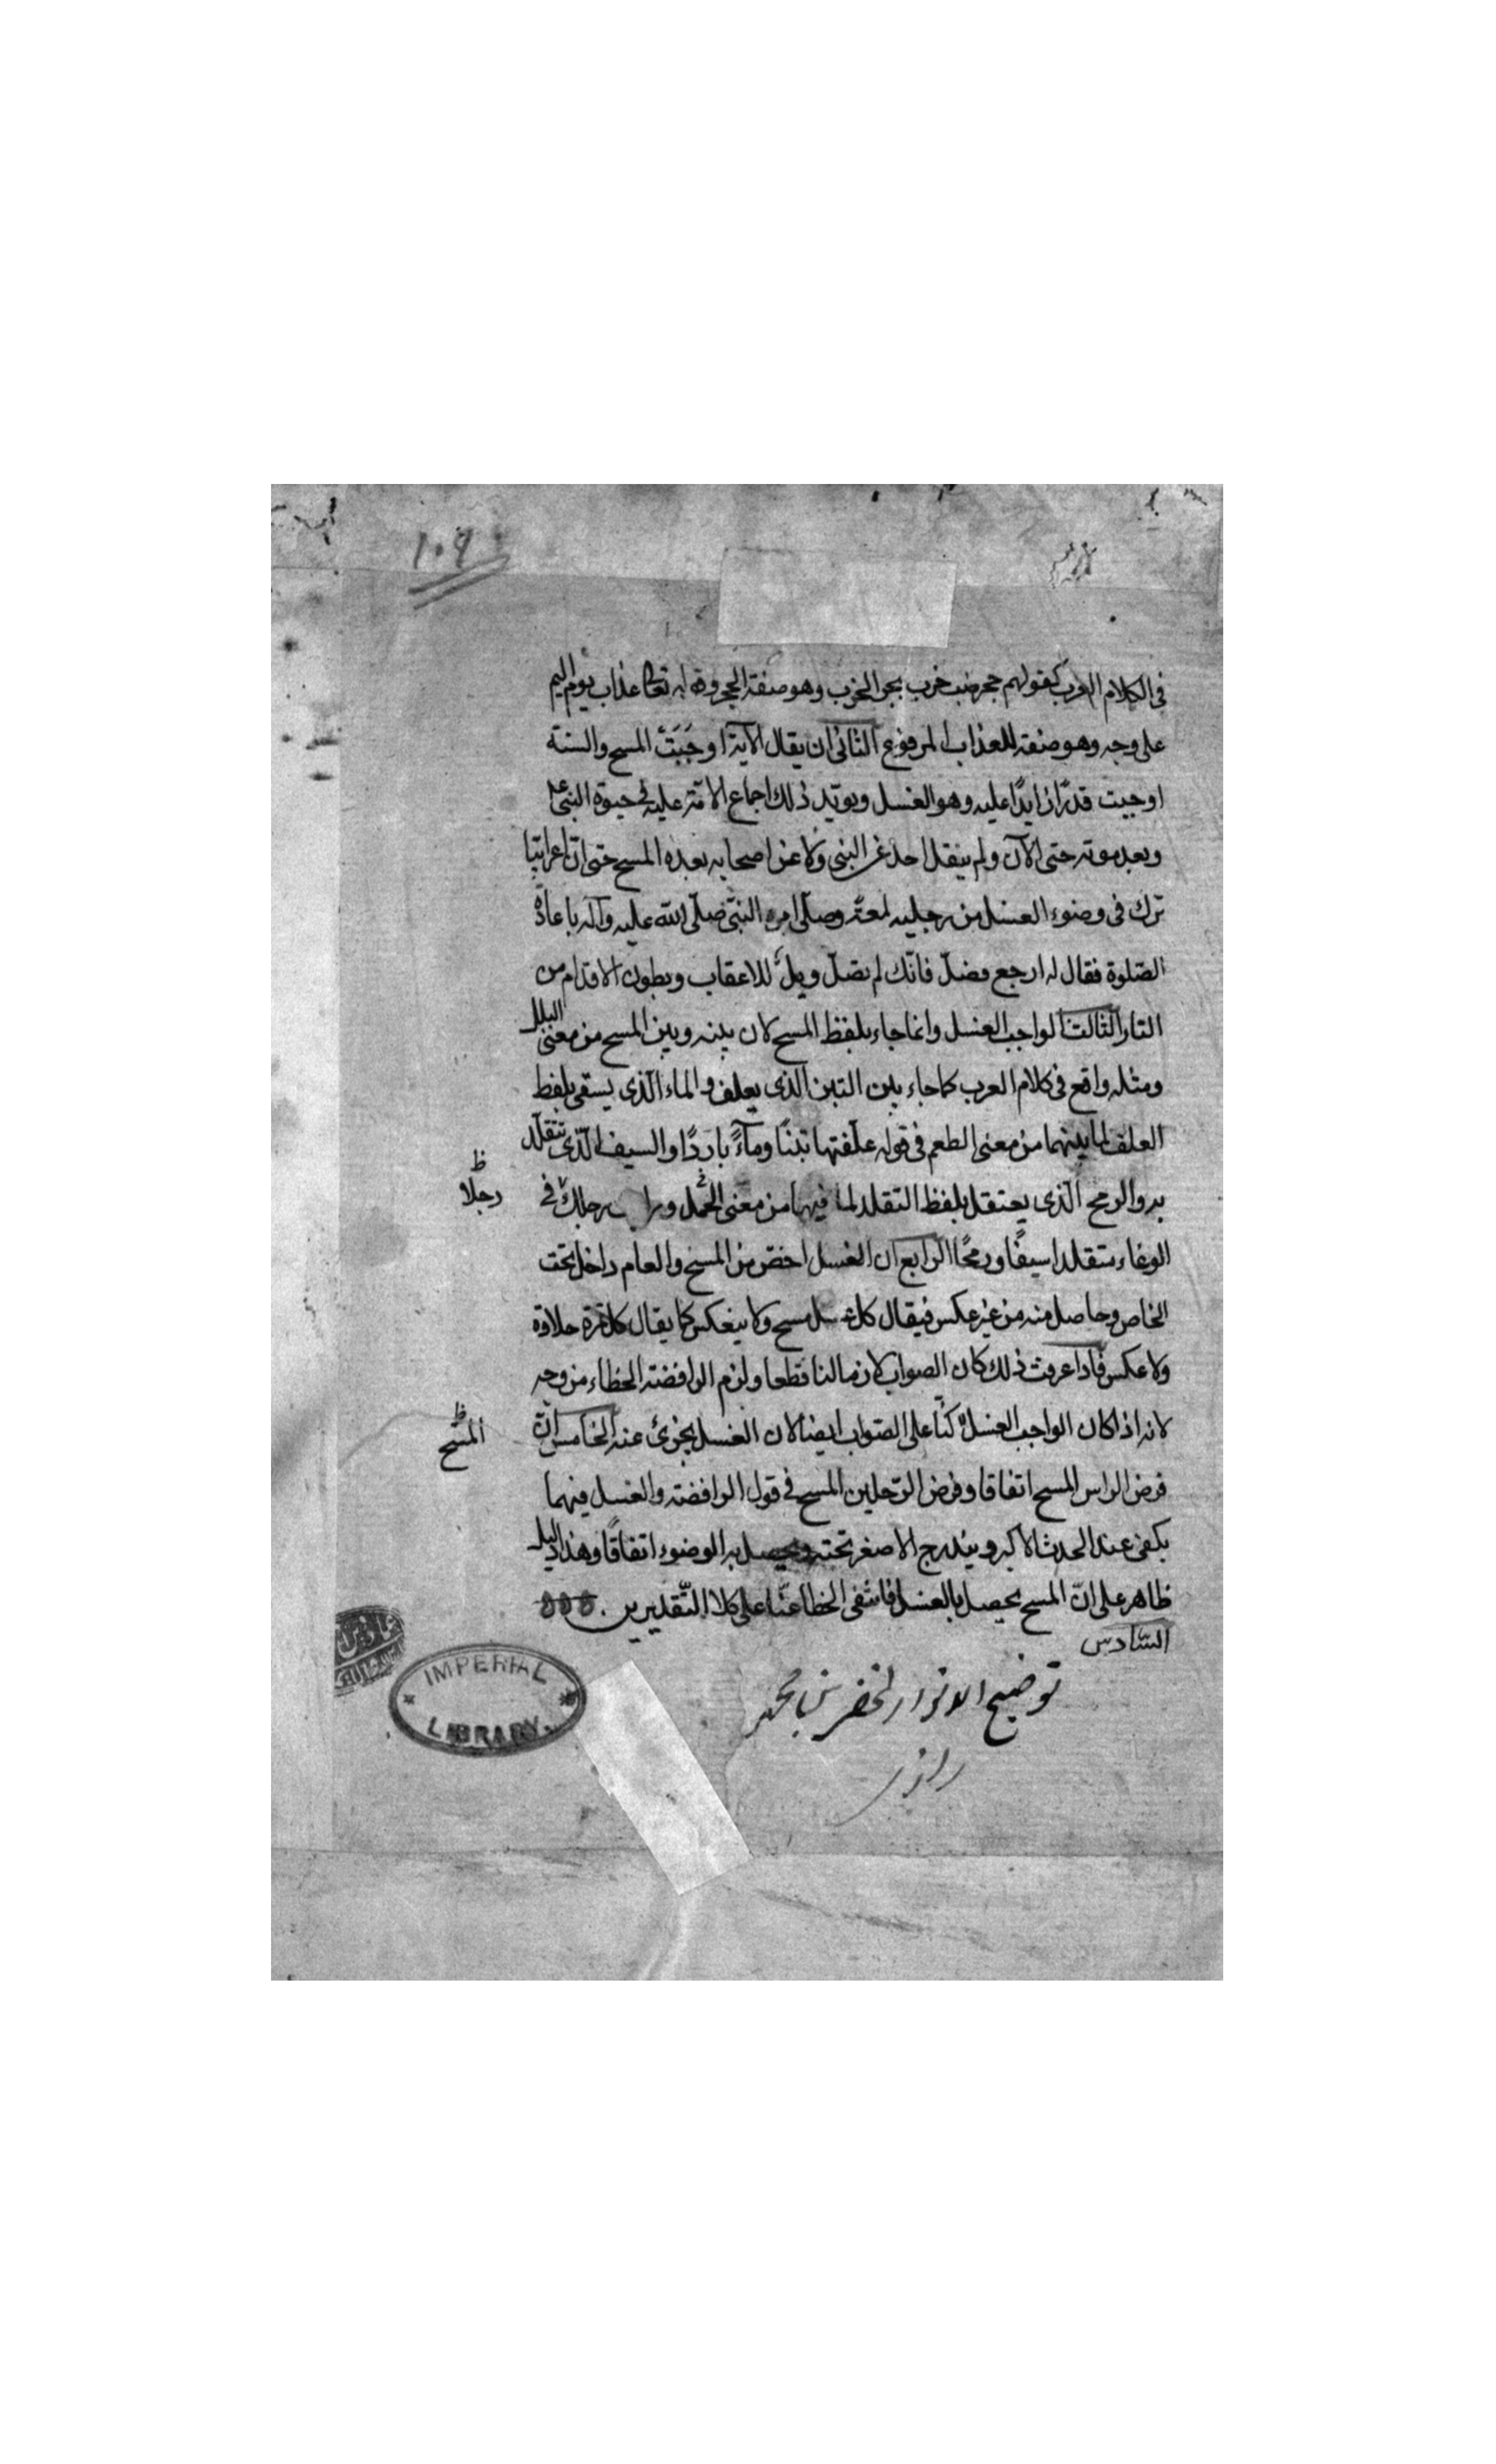 ١٠٩
في الكلام العرب كقولهم جحر ضب خرب بجر الخرب وهو صفة الجحر وقوله تعالى عذاب يوم اليم
على وجه وهو صفة للعذاب المرفوع الثاني ان يقال الآية اوجَبَتْ المسح والسنة
اوجبت قدرًا زايدًا عليه وهو الغسل ويويّد ذلك اجماع الامّة عليه في حيوة النبي
وبعد موته حتى الآن ولم ينقل احد عن النبي ولا عن اصحابه بعده المسح حتى انّ اعرابيّا
ترك في وضوء الغسل من رجليه لمعة وصلّى امره النبيّ صلّى الله عليه وآله باعادة
الصّلوة فقال له ارجع فصلّ فانّك لم تصلّ ويلٌ للاعقاب وبطون الاقدام من
النار الثالث الواجب الغسل وانما جاء بلفظ المسح لان بينه وبين المسح من معنى البلل
ومثله واقع في كلام العرب كما جاء بين التبن الذى يعلف والماء الّذى يسقى بلفظ
العلف لما بينهما من معنى الطعم في قوله علّفتها تبنًا ومآءً باردًا والسيف الّذى تتقلّد
به والرمح الّذى يعتقل بلفظ التقلد لما فيهما من معنى الحمل رجلك في
رجلا ظ
الوغاء متقلدا سيفًا ورمحًا الرابع ان الغسل اخصّ من المسح والعام داخل تحت
الخاص وحاصل منه من غير عكس فيقال كل غسل مسح ولا ينعكس كما يقال كل تمرة حلاوة
ولا عكس فاذا عرفت ذلك كان الصواب لازما لنا قطعا ولزم الرافضة الخطاء من وجه
لانه اذا كان الواجب الغسل كنّا على الصّواب ايضا لان الغسل يجزئ عنه الخامس انّ
المسح ظ
فرض الراس المسح اتفاقا وفرض الرّجلين المسح في قول الرافضة والغسل فيهما
يكفى عند الحدث الاكبر ويندرج الاصغر تحته ويحصل به الوضوء اتفاقًا وهذا دليل
ظاهر على انّ المسح يحصل بالغسل فانتفى الخطا عنّا على كلا التّقديرين
السّادس
توضيح الانوار لخضر بن محمد
رازى
IMPERIAL
LIBRARY